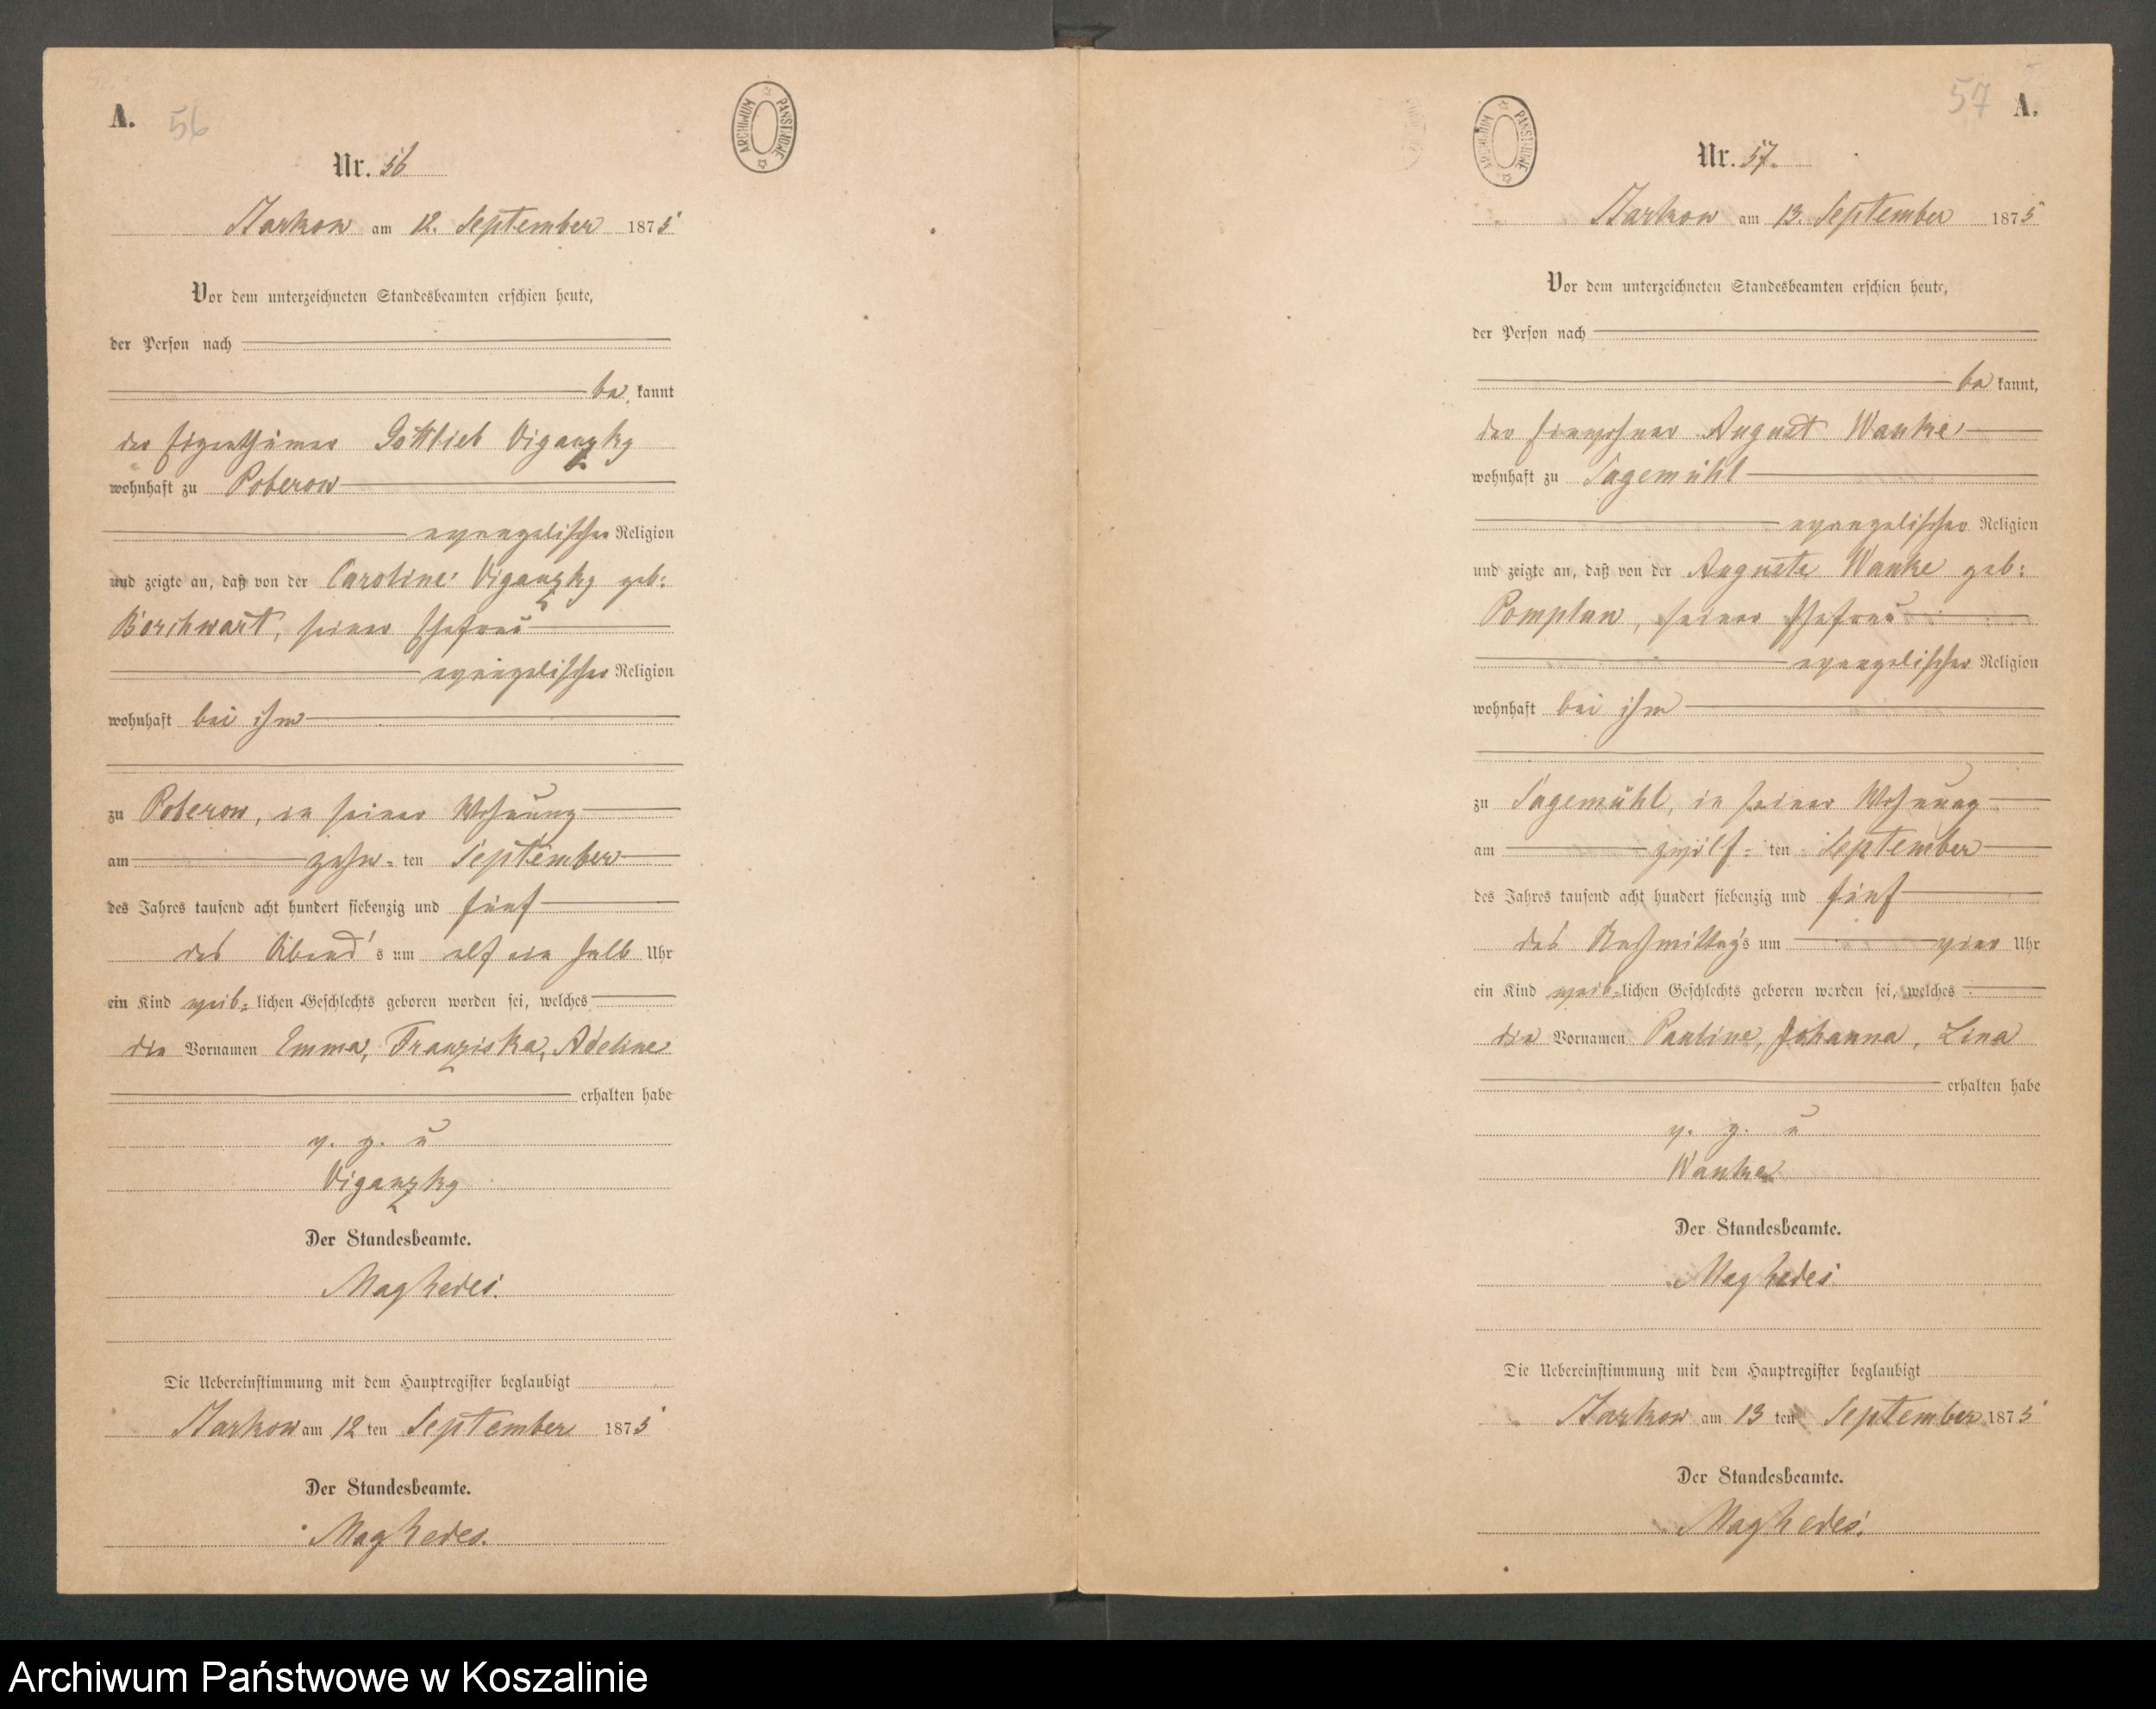 A. 56
ARCHIWUM PAŃSTWOWE
Nr. 56
Starkow am 12. September 1875
Vor dem unterzeichneten Standesbeamten erschien heute,
der Person nach
be kannt
der Eigenthümer Gottlieb Viganzky
wohnhaft zu Poberow
evangelischer Religion
und zeigte an, daß von der Caroline Viganzky geb:
Borchwart, seiner Ehefrau
evangelischer Religion
wohnhaft bei ihm
zu Poberow, in seiner Wohnung
am zehn-ten September
des Jahres tausend acht hundert siebenzig und fünf
des Abend's um elf ein halb Uhr
ein Kind weib-lichen Geschlechts geboren worden sei, welches
die Vornamen Emma, Franziska, Adeline
erhalten habe
v. g. u
Viganzky
Der Standesbeamte.
Die Uebereinstimmung mit dem Hauptregister beglaubigt
Starkow am 12 ten September 1875
Der Standesbeamte.
57 A.
ARCHIWUM PAŃSTWOWE
Nr. 57.
Starkow am 13. September 1875
Vor dem unterzeichneten Standesbeamten erschien heute,
der Person nach
be kannt,
der Einwohner August Wanke
wohnhaft zu Sagemühl
evangelischer Religion
und zeigte an, daß von der Auguste Wanke geb:
Pomplun, seiner Ehefrau
evangelischer Religion
wohnhaft bei ihm
zu Sagemühl, in seiner Wohnung
am zwölf-ten September
des Jahres tausend acht hundert siebenzig und fünf
des Nachmittags um vier Uhr
ein Kind weib-lichen Geschlechts geboren worden sei, welches
die Vornamen Pauline, Johanna, Lina
erhalten habe
v. g. u
Wanke
Der Standesbeamte.
Die Uebereinstimmung mit dem Hauptregister beglaubigt
Starkow am 13 ten September 1875
Der Standesbeamte.
Archiwum Państwowe w Koszalinie